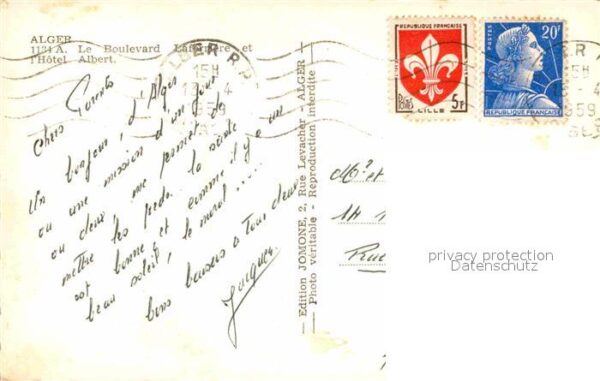 ALGER
1134 A. Le Boulevard Laferrière et
l'Hôtel Albert.
ALGER R.P.
15H
13 -4
1959
REPUBLIQUE FRANÇAISE
5F
LILLE
POSTES
20F
REPUBLIQUE FRANÇAISE
15H
-4
1959
Chers
Un bonjour d'Alger
ou une mission d'un jour
ou deux me permet de
mettre les pieds. La santé
est bonne et comme il y a un
beau soleil, le moral ....
bons baisers à tous deux
Jacques
Edition JOMONE, 2, Rue Levacher - ALGER
Photo véritable - Reproduction interdite
Mr et
14
Rue
privacy protection
Datenschutz